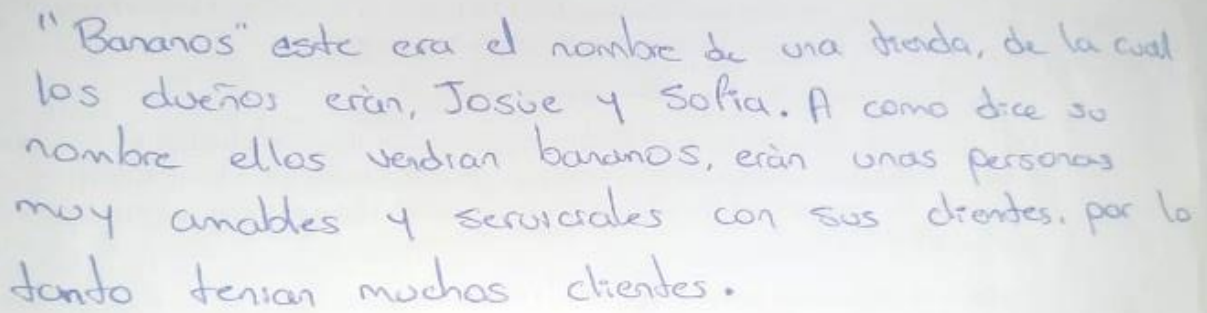 "Bananos" este era el nombre de una tienda, de la cual
los dueños eràn, Josue y Sofia. A como dice su
nombre ellos vendian bananos, eràn unas personas
muy amables y serviciales con sus clientes. por lo
tanto tenian muchos clientes.